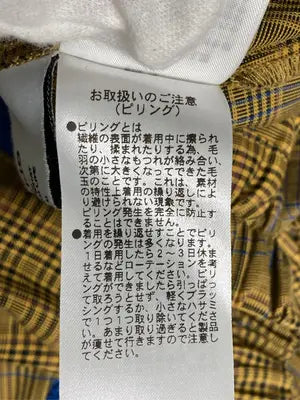 お取扱いのご注意
(ピリング)
●ピリングとは
繊維の表面が着用中に擦られ
たり、揉まれたりする為、毛
羽の小さなもつれが絡み合い、
次第に大きくなってできた毛
玉のことです。これは、素材
の特性上着用の繰り返しによ
り避けられない現象です。
ピリング発生を完全に防止す
ることはできません。
●着用を繰り返すことでピリ
ングの発生は多くなります。
1日着用したら2~3日休ま
せるなどローテーションを考
えて着用してください。ピリ
ングができましたら引っぱっ
て取ろうとせず、軽くブラッ
シングするか、小さなハサミ
で1つ1つ取り除いてくださ
い。あまり取り過ぎると製品
が痩せて行きますので注意し
てください。